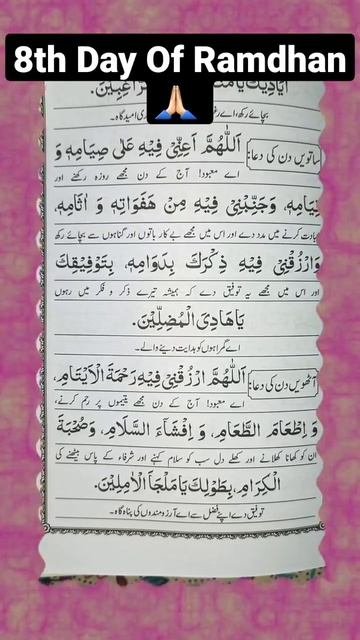 8th Day Of Ramdhan
🙏🏻
ساتویں دن کی دعا: اَللّٰهُمَّ اَعِنِّیْ فِیْهِ عَلٰی صِیَامِهٖ وَ
اے معبود! آج کے دن مجھے روزہ رکھنے اور
قِیَامِهٖ، وَجَنِّبْنِیْ فِیْهِ مِنْ هَفَوَاتِهٖ وَ اٰثَامِهٖ،
عبادت کرنے میں مدد دے اور اس میں مجھے بے کار باتوں اور گناہوں سے بچائے رکھ
وَارْزُقْنِیْ فِیْهِ ذِکْرَكَ بِدَوَامِهٖ، بِتَوْفِیْقِكَ
اور اس میں مجھے یہ توفیق دے کہ ہمیشہ تیرے ذکر و فکر میں رہوں
یَاهَادِیَ الْمُضِلِّیْنَ.
اے گمراہوں کو ہدایت دینے والے۔
آٹھویں دن کی دعا: اَللّٰهُمَّ ارْزُقْنِیْ فِیْهِ رَحْمَةَ الْاَیْتَامِ،
اے معبود! آج کے دن مجھے یتیموں پر رحم کرنے،
وَ اِطْعَامَ الطَّعَامِ، وَ اِفْشَآءَ السَّلَامِ، وَصُحْبَةَ
ان کو کھانا کھلانے اور کھلے دل سب کو سلام کہنے اور شرفاء کے پاس بیٹھنے کی
الْکِرَامِ، بِطَوْلِكَ یَا مَلْجَاَ الْاٰمِلِیْنَ.
توفیق دے اپنے فضل سے اے آرزومندوں کی پناہ گاہ۔